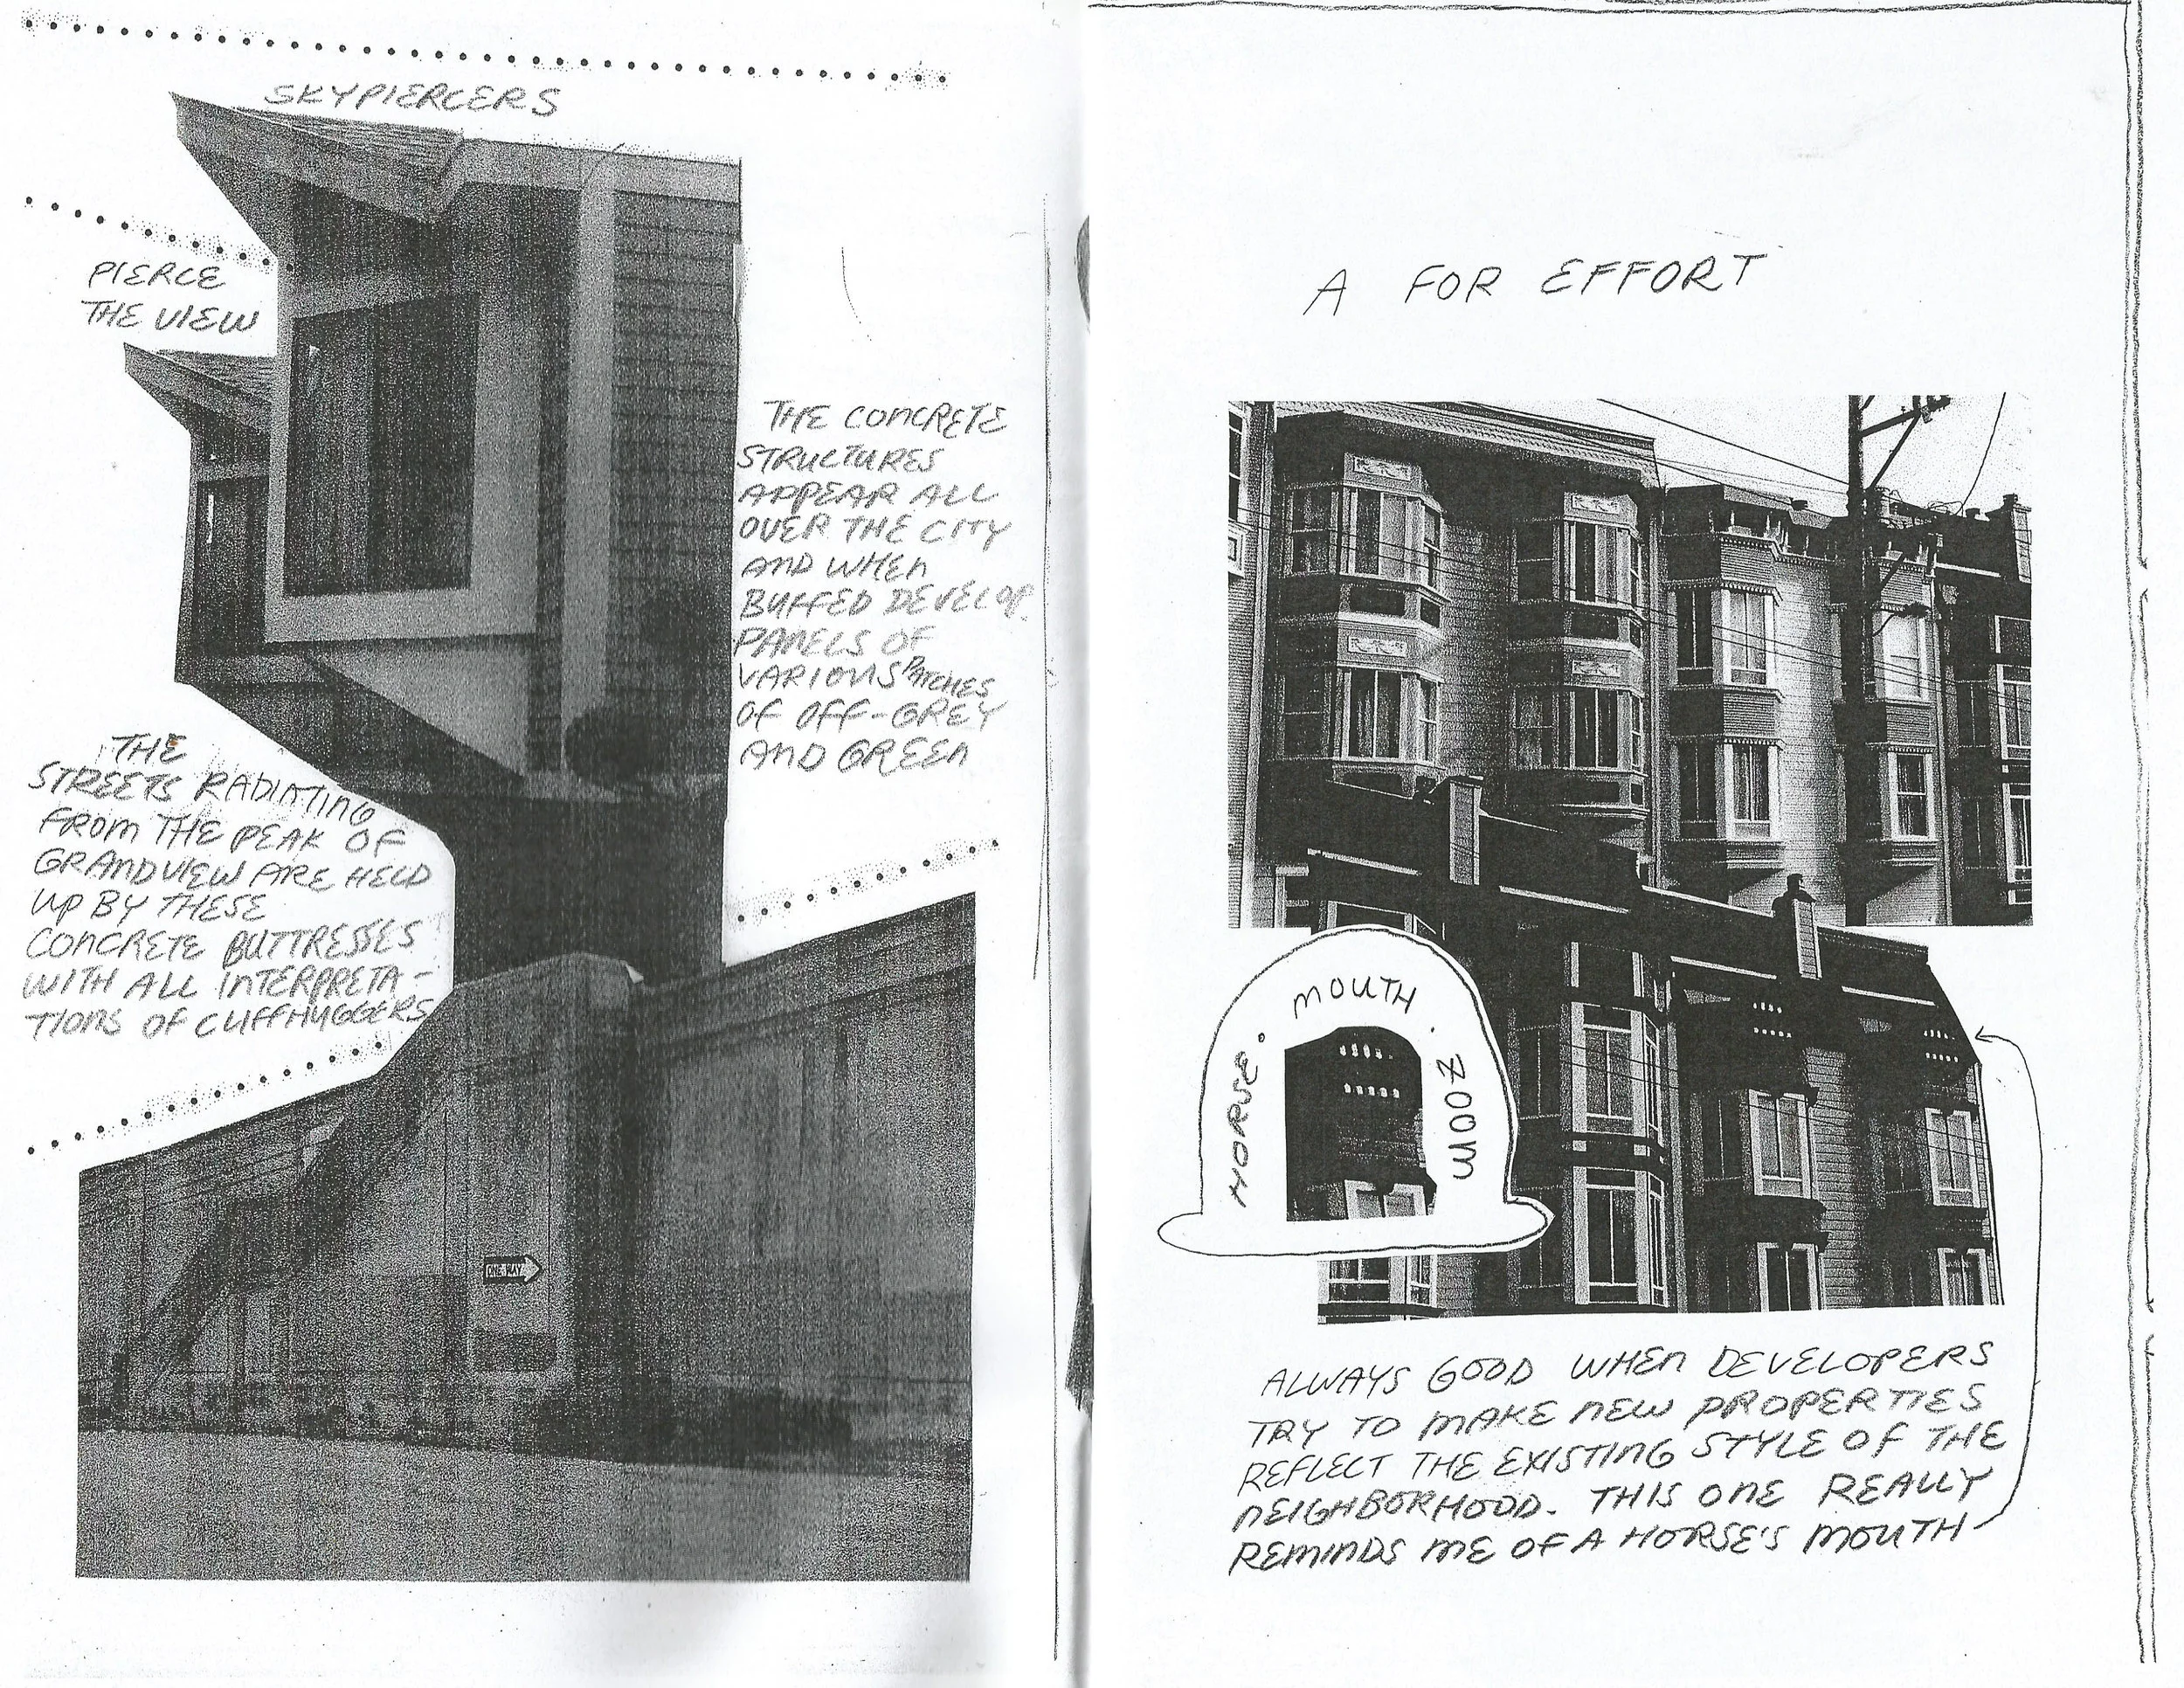 SKYPIERCERS
PIERCE
THE VIEW
THE CONCRETE
STRUCTURES
APPEAR ALL
OVER THE CITY
AND WHEN
BUFFED DEVELOP
PANELS OF
VARIOUS PATCHES
OF OFF-GREY
AND GREEN
THE
STREETS RADIATING
FROM THE PEAK OF
GRANDVIEW ARE HELD
UP BY THESE
CONCRETE BUTTRESSES
WITH ALL INTERPRETA-
TIONS OF CLIFFHUGGERS
ONE WAY
A FOR EFFORT
HORSE. MOUTH. ZOOM
ALWAYS GOOD WHEN DEVELOPERS
TRY TO MAKE NEW PROPERTIES
REFLECT THE EXISTING STYLE OF THE
NEIGHBORHOOD. THIS ONE REALLY
REMINDS ME OF A HORSE'S MOUTH